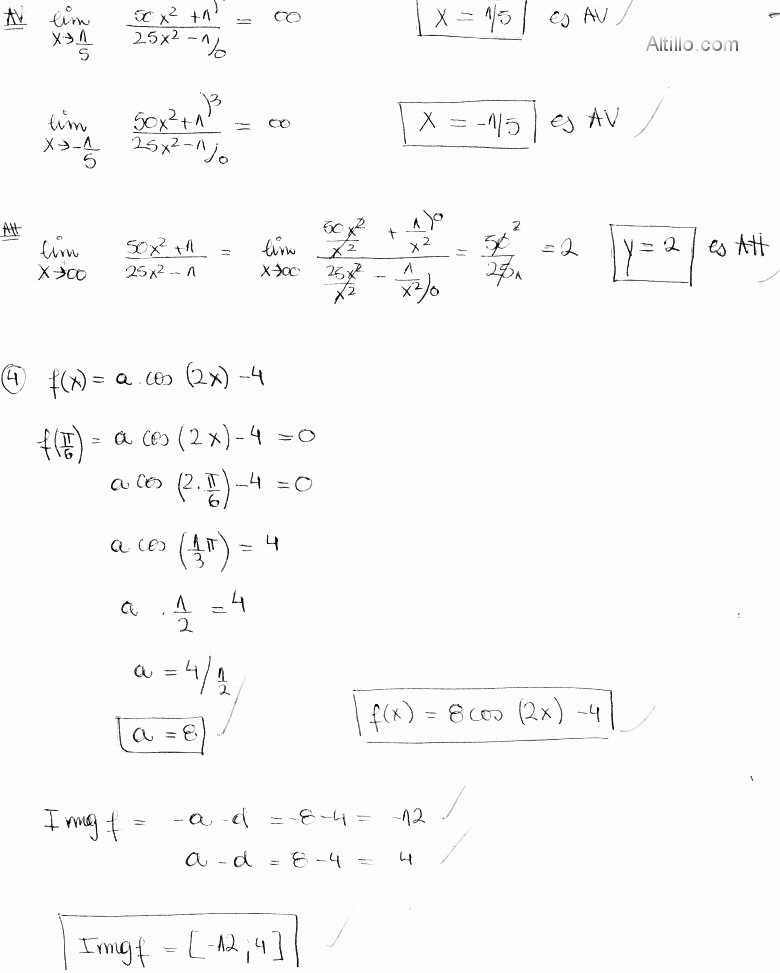 AV lim x→1/5 50x² + 1)³ / 25x² - 1)0 = ∞ X = 1/5 es AV
Altillo.com
lim x→-1/5 50x² + 1)³ / 25x² - 1)0 = ∞ X = -1/5 es AV
AH lim x→∞ 50x² + 1 / 25x² - 1 = lim x→∞ 50x²/x² + 1/x²)0 / 25x²/x² - 1/x²)0 = 50² / 25₁ = 2 y = 2 es AH
④ f(x) = a . cos (2x) - 4
f(π/6) = a cos (2x) - 4 = 0
a cos (2.π/6) - 4 = 0
a cos (1/3 π) = 4
a . 1/2 = 4
a = 4/ 1/2
a = 8
f(x) = 8 cos (2x) - 4
Img f = -a - d = -8 - 4 = -12
a - d = 8 - 4 = 4
Img f = [-12 ; 4]